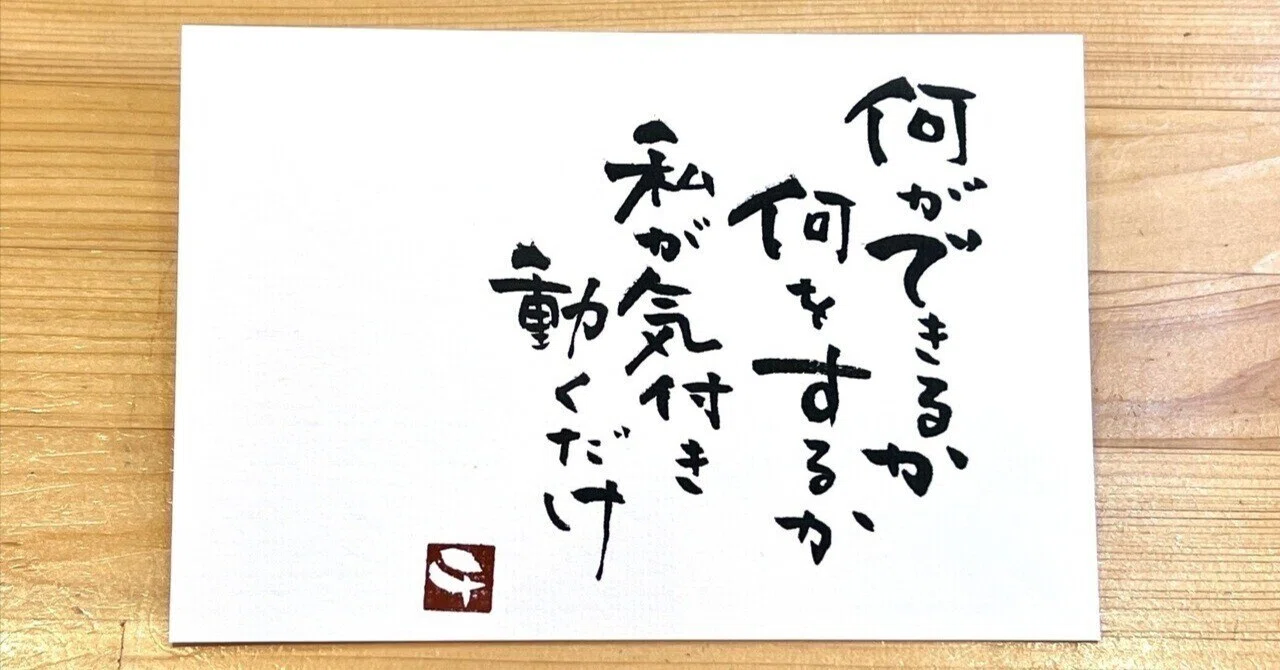 何ができるか
何をするか
私が気付き
動くだけ